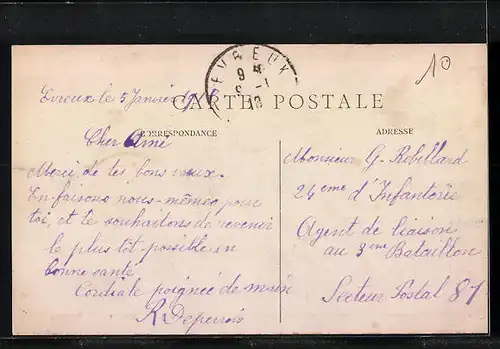 EVREUX
10
Evreux le 5 Janvier
CARTE POSTALE
CORRESPONDANCE
ADRESSE
Cher Ami
Merci de tes bons vœux.
En faisons nous-mêmes pour
toi, et te souhaitons de revenir
le plus tôt possible en
bonne santé
Cordiale poignée de main
Monsieur G. Robillard
24eme d'Infanterie
Agent de liaison
au 3eme Bataillon
Secteur Postal 87